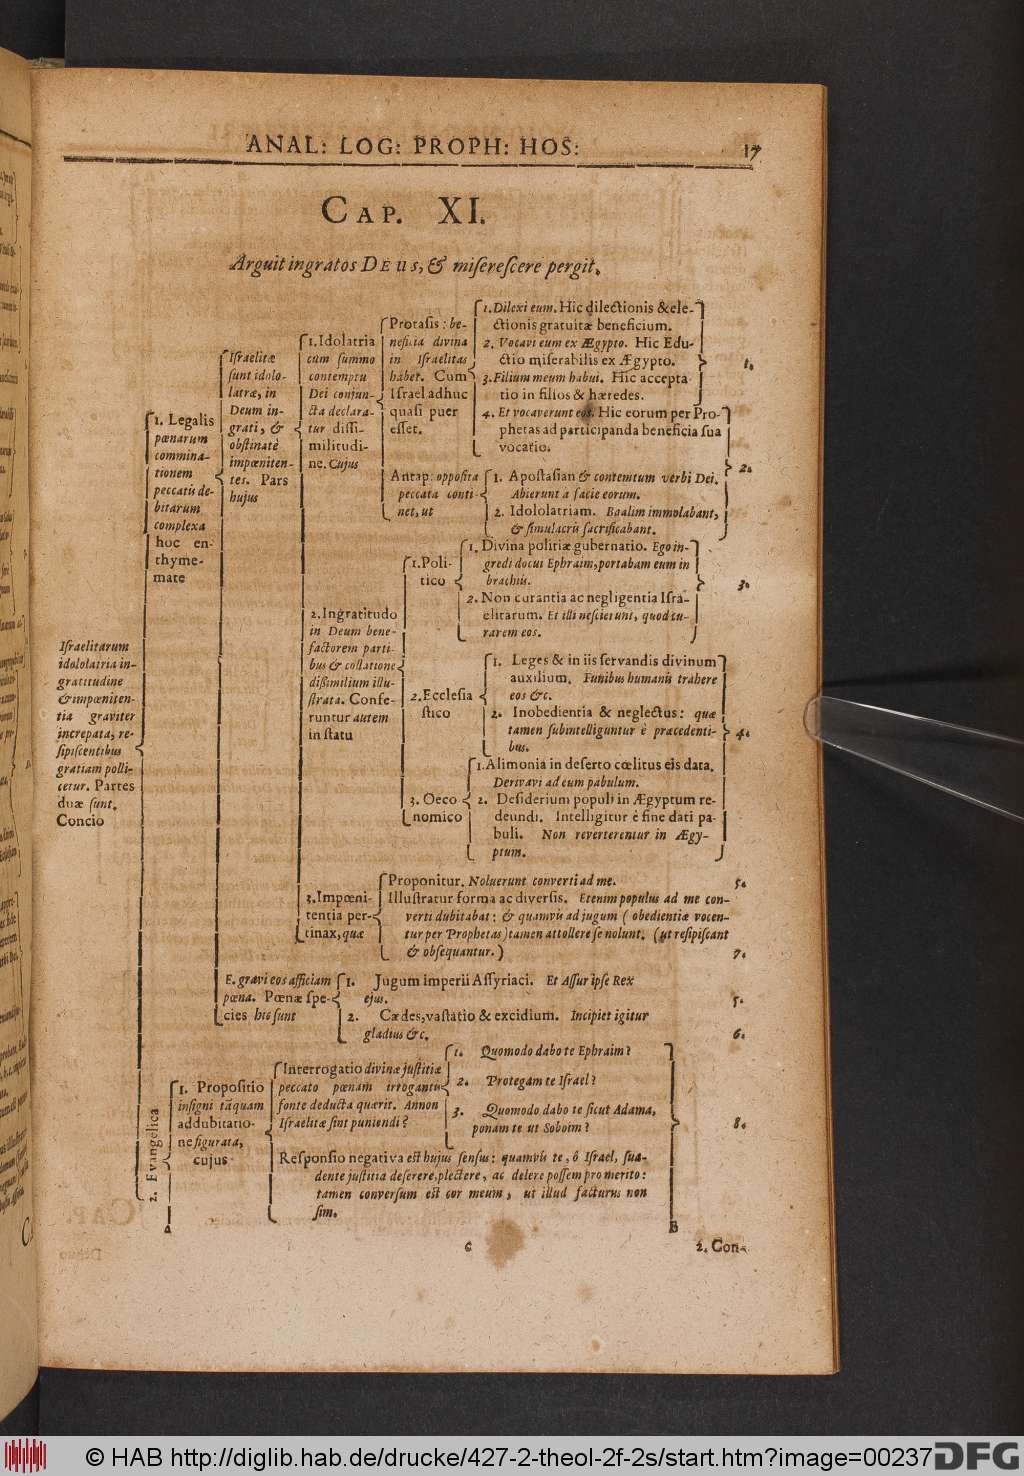 ANAL: LOG: PROPH: HOS: 17
CAP. XI.
Arguit ingratos DEUS, & miserescere pergit.
Israelitarum
idololatria in-
gratitudine
& impœniten-
tia graviter
increpata, re-
sipiscentibus
gratiam polli-
cetur. Partes
duæ sunt.
Concio
1. Legalis
pœnarum
commina-
tionem
peccatis de-
bitarum
complexa
hoc en-
thyme-
mate
Israelitæ
sunt idolo-
latræ, in
Deum in-
grati, &
obstinatè
impœniten-
tes. Pars
hujus
1. Idolatria
cum summo
contemptu
Dei conjun-
cta declara-
tur dissi-
militudi-
ne. Cujus
Protasis: be-
neficia divina
in Israelitas
habet. Cum
Israel adhuc
quasi puer
esset.
1. Dilexi eum. Hic dilectionis & ele-
ctionis gratuitæ beneficium.
2. Vocavi eum ex Ægypto. Hic Edu-
ctio miserabilis ex Ægypto.
3. Filium meum habui. Hic accepta-
tio in filios & hæredes.
1.
4. Et vocaverunt eos. Hic eorum per Pro-
phetas ad participanda beneficia sua
vocatio.
Antap: opposita
peccata conti-
net, ut
1. Apostasian & contemtum verbi Dei.
Abierunt a facie eorum.
2. Idololatriam. Baalim immolabant,
& simulacris sacrificabant.
2.
2. Ingratitudo
in Deum bene-
factorem parti-
bus & collatione
dissimilium illu-
strata. Confe-
runtur autem
in statu
1. Poli-
tico
1. Divina politiæ gubernatio. Ego in-
gredi docui Ephraim, portabam eum in
brachiis.
2. Non curantia ac negligentia Isra-
elitarum. Et illi nescierunt, quod cu-
rarem eos.
3.
2. Ecclesia
stico
1. Leges & in iis servandis divinum
auxilium. Funibus humanis trahere
eos &c.
2. Inobedientia & neglectus: quæ
tamen subintelliguntur è præcedenti-
bus.
4.
3. Oeco
nomico
1. Alimonia in deserto cœlitus eis data.
Derivavi ad eum pabulum.
2. Desiderium populi in Ægyptum re-
deundi. Intelligitur è fine dati pa-
buli. Non reverterentur in Ægy-
ptum.
3. Impœni-
tentia per-
tinax, quæ
Proponitur. Noluerunt converti ad me.
5.
Illustratur forma ac diversis. Etenim populus ad me con-
verti dubitabat: & quamvis ad jugum (obedientiæ vocen-
tur per Prophetas) tamen attollere se nolunt. (ut resipiscant
& obsequantur.)
7.
E. gravi eos afficiam
pœna. Pœnæ spe-
cies hic sunt
1. Jugum imperii Assyriaci. Et Assur ipse Rex
ejus.
5.
2. Cædes, vastatio & excidium. Incipiet igitur
gladius &c.
6.
2. Evangelica
1. Propositio
insigni tãquam
addubitatio-
ne figurata,
cujus
Interrogatio divinæ justitiæ
peccato pœnam irrogantis
fonte deducta quærit. Annon
Israelitæ sint puniendi?
1. Quomodo dabo te Ephraim?
2. Protegam te Israel?
3. Quomodo dabo te sicut Adama,
ponam te ut Soboim?
8.
Responsio negativa est hujus sensus: quamvis te, ô Israel, sua-
dente justitia deserere, plectere, ac delere possem pro merito:
tamen conversum est cor meum, ut illud facturus non
sim.
A B
c 2. Con-
© HAB http://diglib.hab.de/drucke/427-2-theol-2f-2s/start.htm?image=00237
DFG